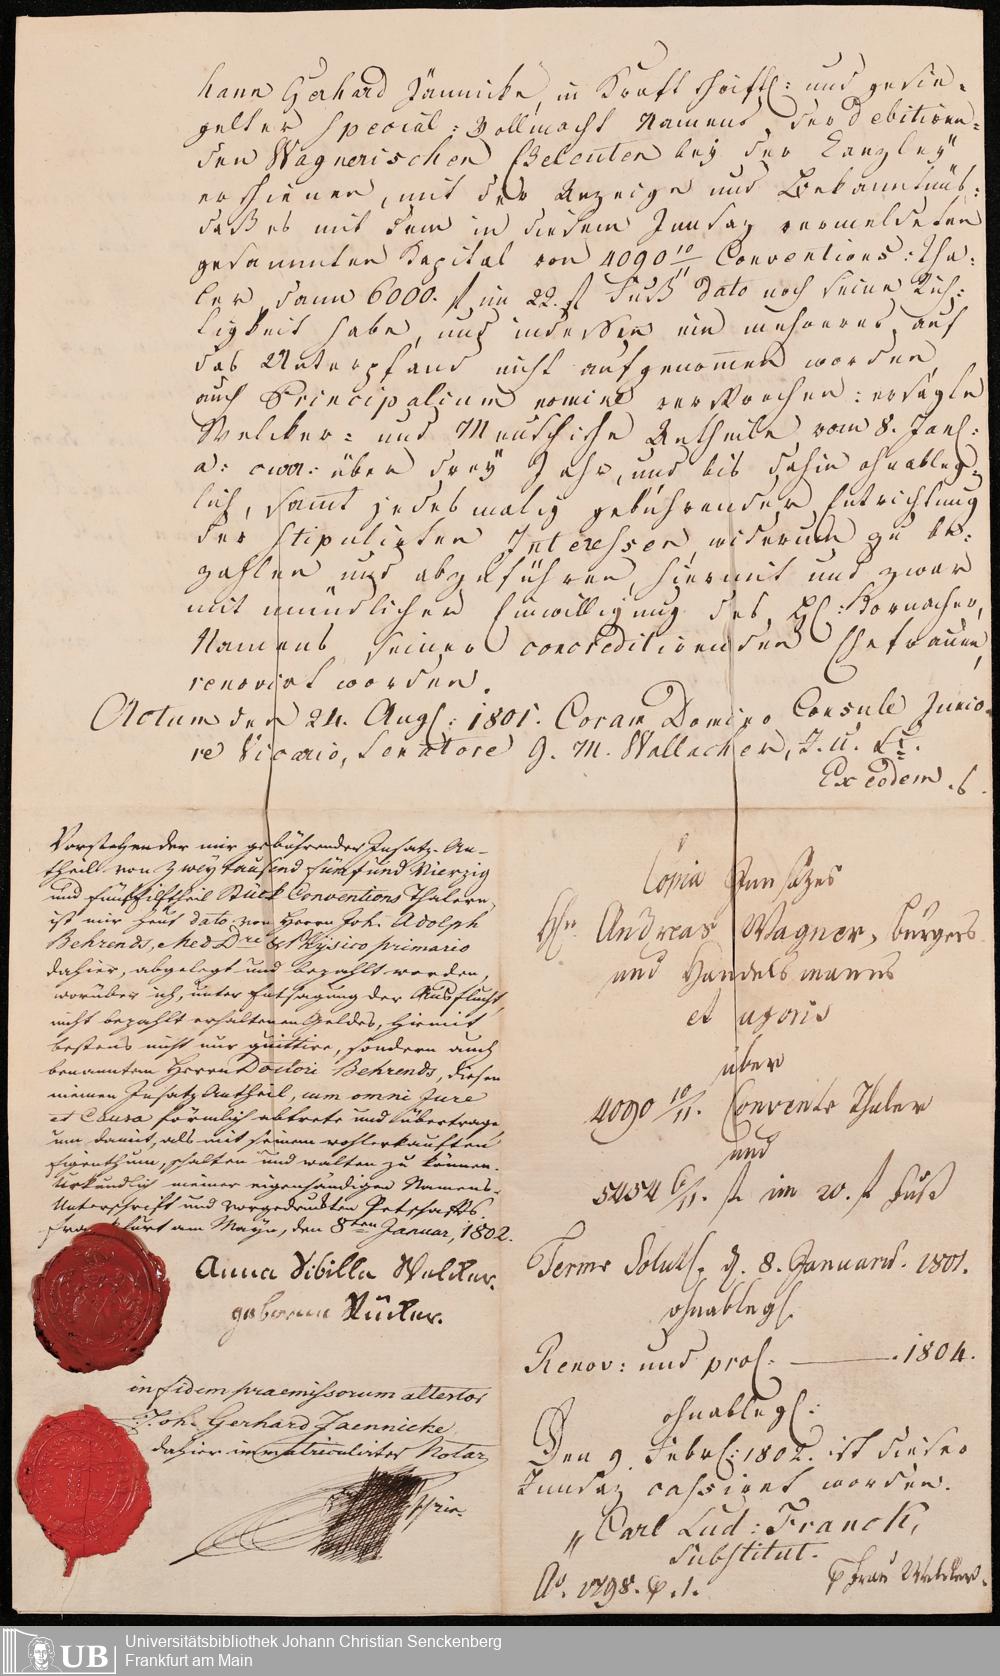 hann Gerhard Jännicke, in Kraft schriftl: und gesie-
gelter Special: Vollmacht Namens der debitiren-
den Wagnerischen Eheleuten bey der Canzley
erschienen, mit der Anzeige und Bekanntnüß:
daß es mit dem in diesem Innsaz vermeldeten
gesammten Kapital von 4090 10/11 Conventions: Tha-
ler, dann 6000. fl im 22. fl Fuß dato noch seine Rich-
tigkeit habe, und indessen ein mehreres auf
das Unterpfand nicht aufgenommen worden,
auch Principalium nomine versprochen: ersagte
Welcker- und Meuschische Antheile vom 8. Jan:
a: curr: über drey Jahr, und bis dahin ohnableg-
lich, samt jedesmalig gebührender Entrichtung
der stipulirten Interessen, widerum zu be-
zahlen und abzuführen, hiermit und zwar
mit mündlicher Einwilligung des H: Kornacher,
Namens seiner concreditirenden Ehefrauen,
renovirt worden.
Actum den 24. Aug: 1801. Coram Domino Consule Junio-
re Vicario, Senatore G. M. Wallacher, J. U. Lt.
Ex eodem . 6.
Vorstehender mir gebührender Insatz-An-
theil von Zwey tausend fünf und Vierzig
und fünf Eilftheil Stück Conventions Thalern,
ist mir heut dato von Herrn Joh. Adolph
Behrends, Med. Dre & Physico primario
dahier, abgelegt und bezahlt worden,
worüber ich, unter Entsagung der Ausflucht
nicht bezahlt erhaltenen Geldes, hiemit
bestens nicht nur quittire, sondern auch
benanntem Herrn Doctori Behrends, diesen
meinen Insatz-Antheil, cum omni Jure
et Causa förmlich abtrete und übertrage
um damit, als mit seinem wohlerkauften
Eigenthum, schalten und walten zu können.
Urkundlich meiner eigenhändigen Namens-
Unterschrift und vorgedruckten Petschafts.
Frankfurt am Mayn, den 8ten Januar, 1802.
Anna Sibilla Welcker.
geborene Rücker.
in fidem praemissorum attestor
Joh. Gerhard Jaennicke
dahier immatriculirter Notar
Copia Innsazes
Hrn Andreas Wagner, burgers
und Handelsmanns
et uxoris
über
4090 10/11. Convents Thaler
und
5454 6/11. fl. im 20. fl Fuß
Term. Solut. d. 8. Januarii. 1801.
ohnablegl.
Renov: und prol. ———. 1804.
ohnablegl:
Den 9. Febr: 1802. ist dieser
Innsaz cassiret worden.
„ Carl Lud: Franck,
Substitut.
Ao. 1798. p. 1.
p Frau Welcker.
UB
Universitätsbibliothek Johann Christian Senckenberg
Frankfurt am Main